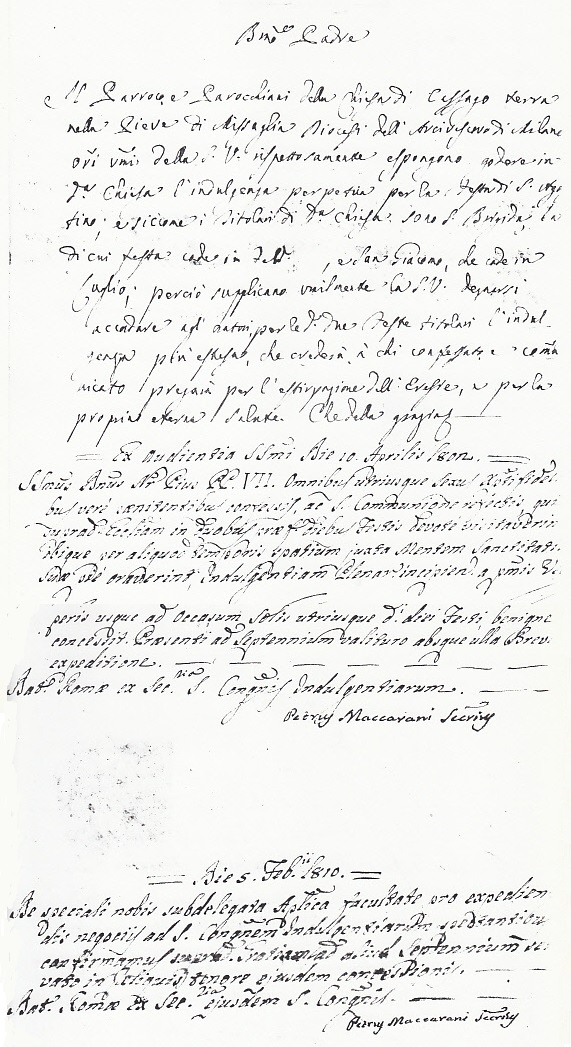 Bmo Padre
Il Parroco, e Parocchiani della Chiesa di Cassago terra
nella Pieve di Missaglia Diocesi dell'Arcivescovo di Milano
ori umi della S. V. rispettosamente espongono godere in
da Chiesa l'indulgenza perpetua per la Festa di S. Ago
tino; e siccome i Titolari di da Chiesa sono S. Brigida, la
di cui festa cade in , e San Giacomo, che cade in
Luglio; perciò supplicano umilmente la S. V. degnarsi
accordare agli ,per le de due Feste titolari l'indul-
genza più estesa, che crederà, à chi confessato, e comu
nicato pregarà per l'estirpazione dell'Eresie, e per la
propria eterna salute. Che della grazia
Ex Audientia SSmi Die 10. Aprilis 1802.
SSmus Dnus Nr Pius PP. VII. Omnibus utriusque sexus Xptifideli
bus vere poenitentibus confessis, ac S. Communione refectis, qui
suprad. Eccliam in duobus praef. diebus Festis devote visitaverint
ibique per aliquod temporis spatium juxta Mentem Sanctitatis
Suae pie oraverint, Indulgentiam Plenar. incipien. a pmis Ve
peris usque ad Occasum Solis utriusque di. diei Festi, benigne
concessit. Praesenti ad Septennium valituro absque ulla Brev.
expeditione.
Dat. Romae ex Secria S. Congnis Indulgentiarum.
Petrus Maccarani Secrius
Die 5. Febrii 1810.
De speciali nobis subdelegata Aplica facultate pro expedien
dis negociis ad S. Congnem Indulgentiarum spectantibus
confirmamus Gratiam ad aliud Septennium ser
vato in reliquis tenore ejusdem concessionis.
Dat. Romae Ex Secria ejusdem S. Congnis.
Petrus Maccarani Secrius